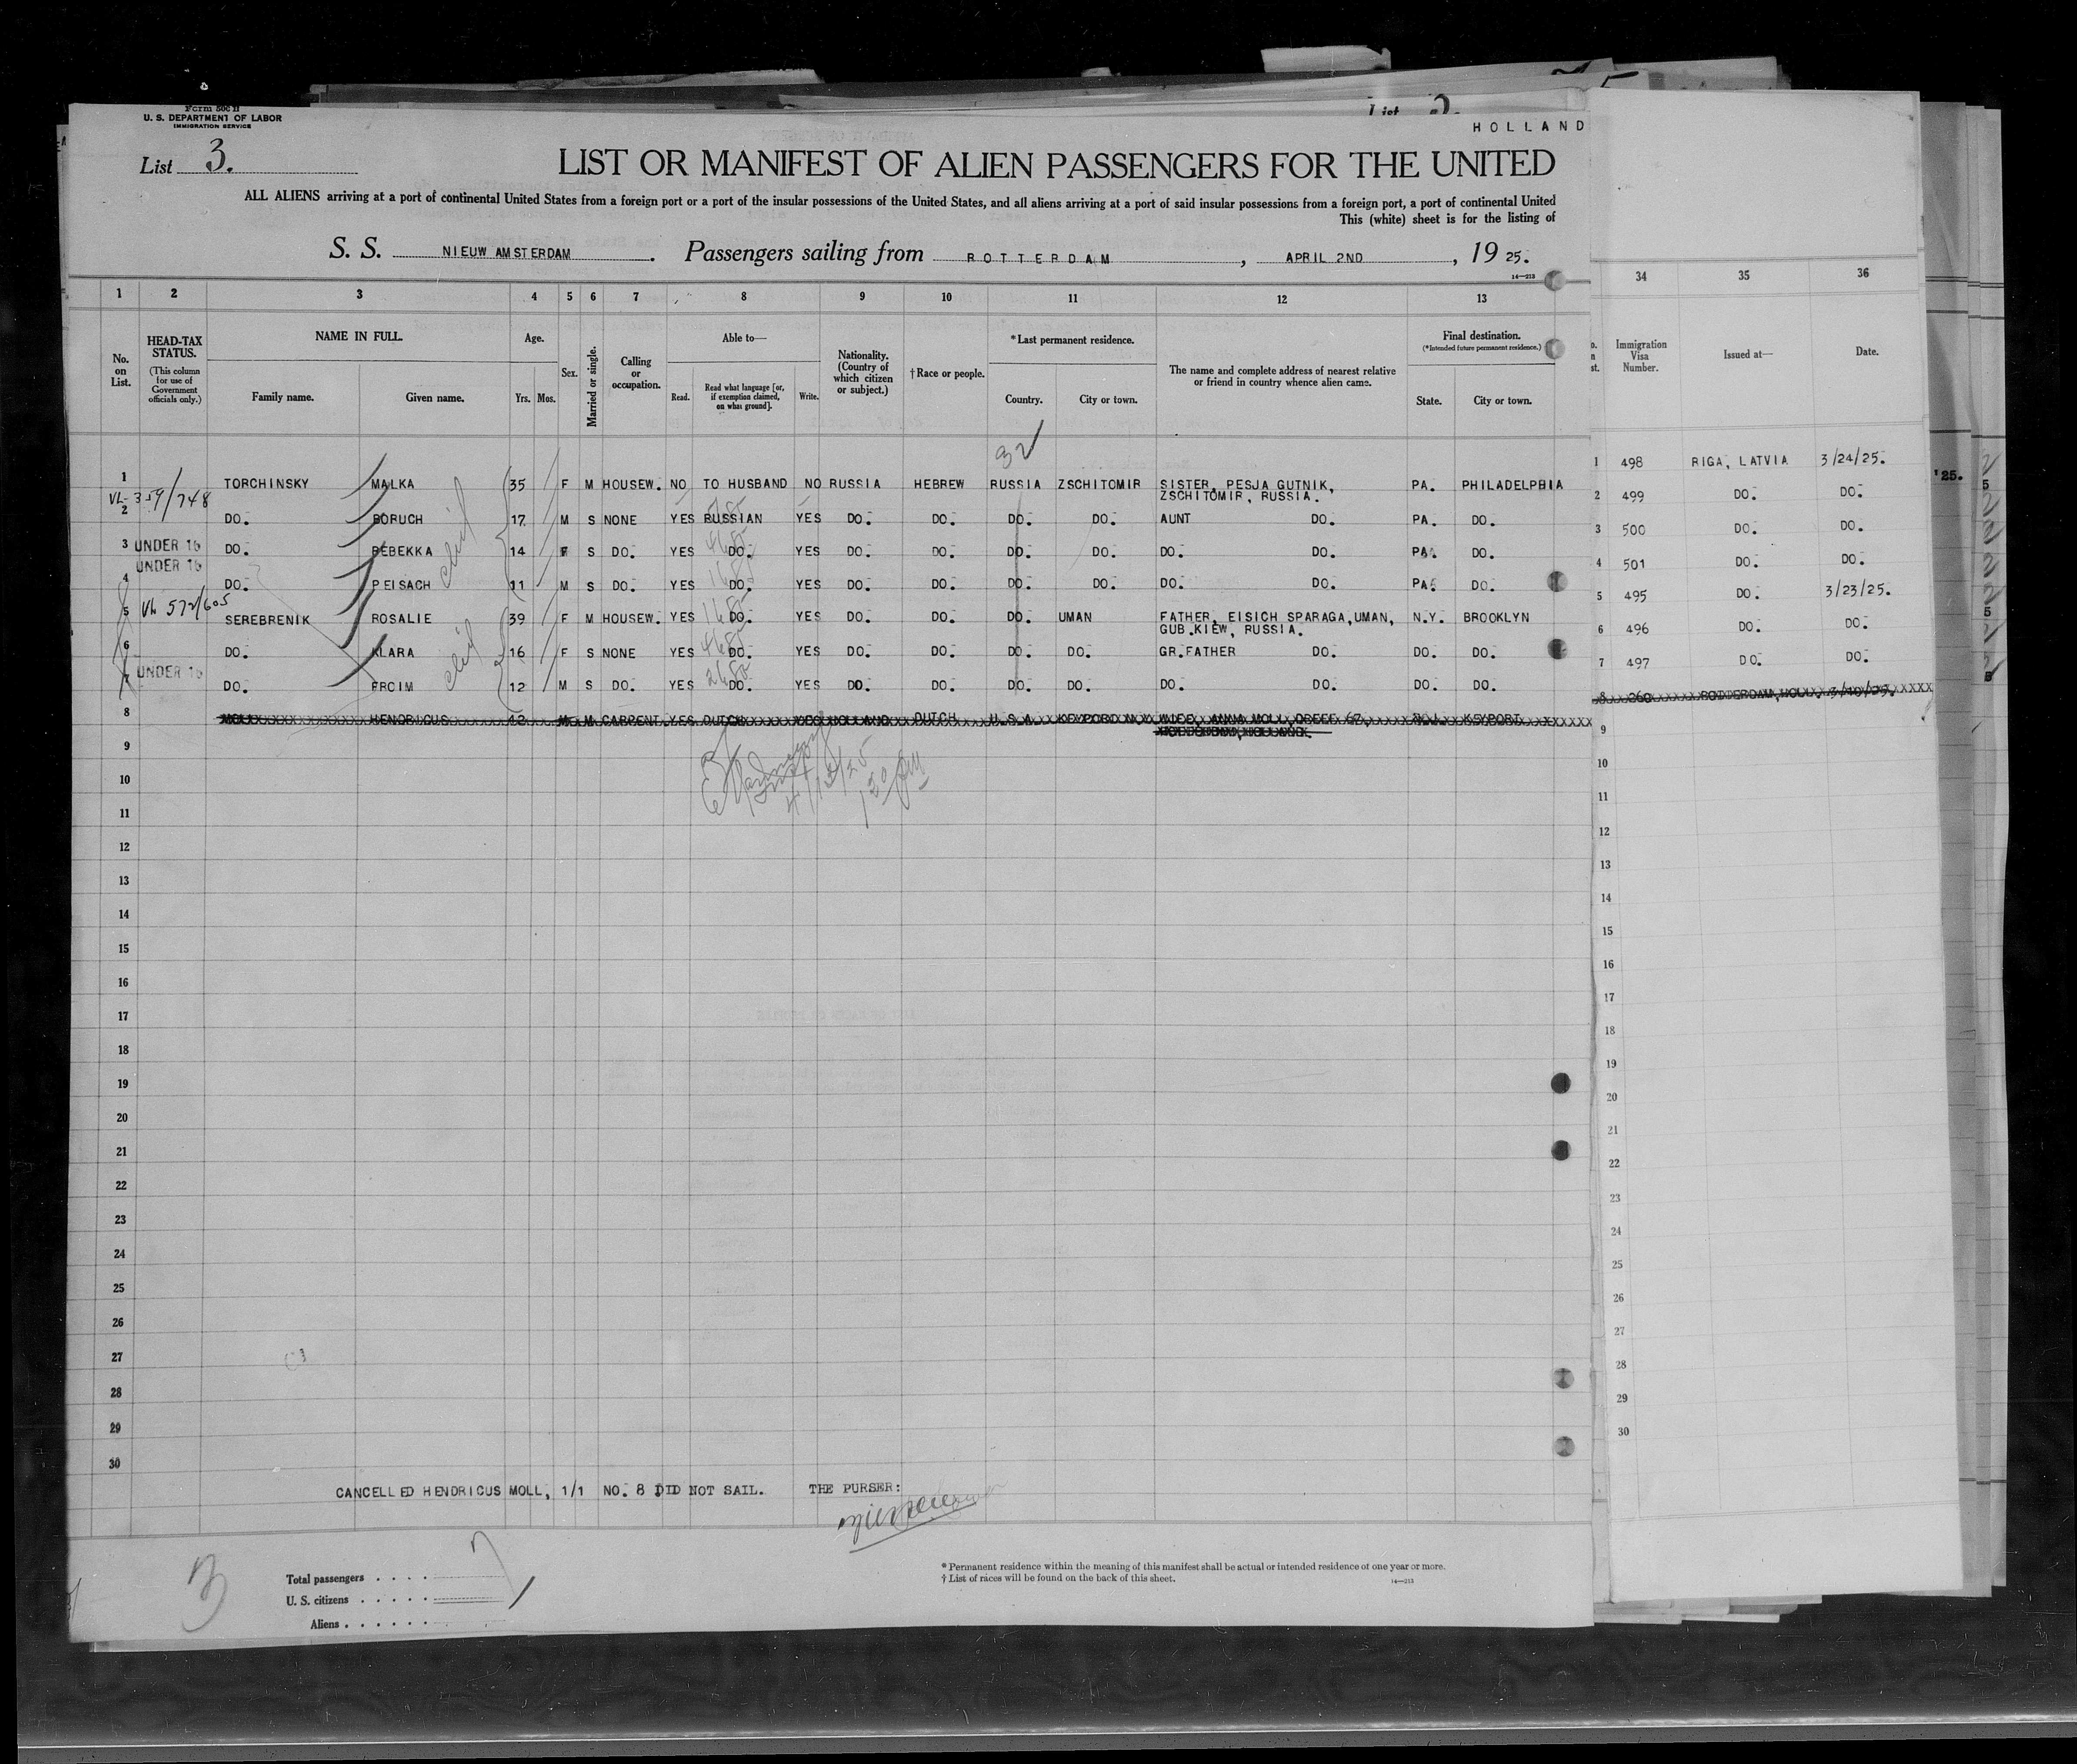 Form 500 II
U. S. DEPARTMENT OF LABOR
IMMIGRATION SERVICE
List 2.
HOLLAND
List 3.
LIST OR MANIFEST OF ALIEN PASSENGERS FOR THE UNITED
ALL ALIENS arriving at a port of continental United States from a foreign port or a port of the insular possessions of the United States, and all aliens arriving at a port of said insular possessions from a foreign port, a port of continental United
This (white) sheet is for the listing of
S. S. NIEUW AMSTERDAM. Passengers sailing from ROTTERDAM, APRIL 2ND, 19 25.
14—213
1 2 3 4 5 6 7 8 9 10 11 12 13 34 35 36
No. on List.
HEAD-TAX STATUS.
(This column for use of Government officials only.)
NAME IN FULL.
Family name. Given name.
Age.
Yrs. Mos.
Sex.
Married or single.
Calling or occupation.
Able to—
Read. Read what language [or, if exemption claimed, on what ground]. Write.
Nationality. (Country of which citizen or subject.)
† Race or people.
* Last permanent residence.
Country. City or town.
The name and complete address of nearest relative or friend in country whence alien came.
Final destination.
(*Intended future permanent residence.)
State. City or town.
Immigration Visa Number.
Issued at—
Date.
32
1 TORCHINSKY MALKA 35 F M HOUSEW. NO TO HUSBAND NO RUSSIA HEBREW RUSSIA ZSCHITOMIR SISTER, PESJA GUTNIK, ZSCHITOMIR, RUSSIA. PA. PHILADELPHIA 1 498 RIGA, LATVIA 3/24/25.
VL-359/748
2 DO. BORUCH 17 M S NONE YES RUSSIAN YES DO. DO. DO. DO. AUNT DO. PA. DO. 2 499 DO. DO.
3 UNDER 16 DO. REBEKKA 14 F S DO. YES DO. YES DO. DO. DO. DO. DO. DO. PA. DO. 3 500 DO. DO.
4 UNDER 16 DO. PEISACH 11 M S DO. YES DO. YES DO. DO. DO. DO. DO. DO. PA. DO. 4 501 DO. DO.
5 VL 572/605 SEREBRENIK ROSALIE 39 F M HOUSEW. YES DO. YES DO. DO. DO. UMAN FATHER, EISICH SPARAGA, UMAN, GUB.KIEW, RUSSIA. N.Y. BROOKLYN 5 495 DO. 3/23/25.
6 DO. KLARA 16 F S NONE YES DO. YES DO. DO. DO. DO. GR.FATHER DO. DO. DO. 6 496 DO. DO.
7 UNDER 16 DO. FROIM 12 M S DO. YES DO. YES DO. DO. DO. DO. DO. DO. DO. DO. 7 497 DO. DO.
8 MOLL HENDRICUS 42 M M CARPENT. YES DUTCH YES HOLLAND DUTCH U.S.A. KEYPORT WIFE, ANNA MOLL KEYPORT 8 260
9 9
4/12/25
10 10
11 11
12 12
13 13
14 14
15 15
16 16
17 17
18 18
19 19
20 20
21 21
22 22
23 23
24 24
25 25
26 26
27 27
28 28
29 29
30 30
CANCELLED HENDRICUS MOLL, 1/1 NO. 8 DID NOT SAIL. THE PURSER:
3
Total passengers . . . . 7
U. S. citizens . . . . .
Aliens . . . . . .
* Permanent residence within the meaning of this manifest shall be actual or intended residence of one year or more.
† List of races will be found on the back of this sheet.
14—213